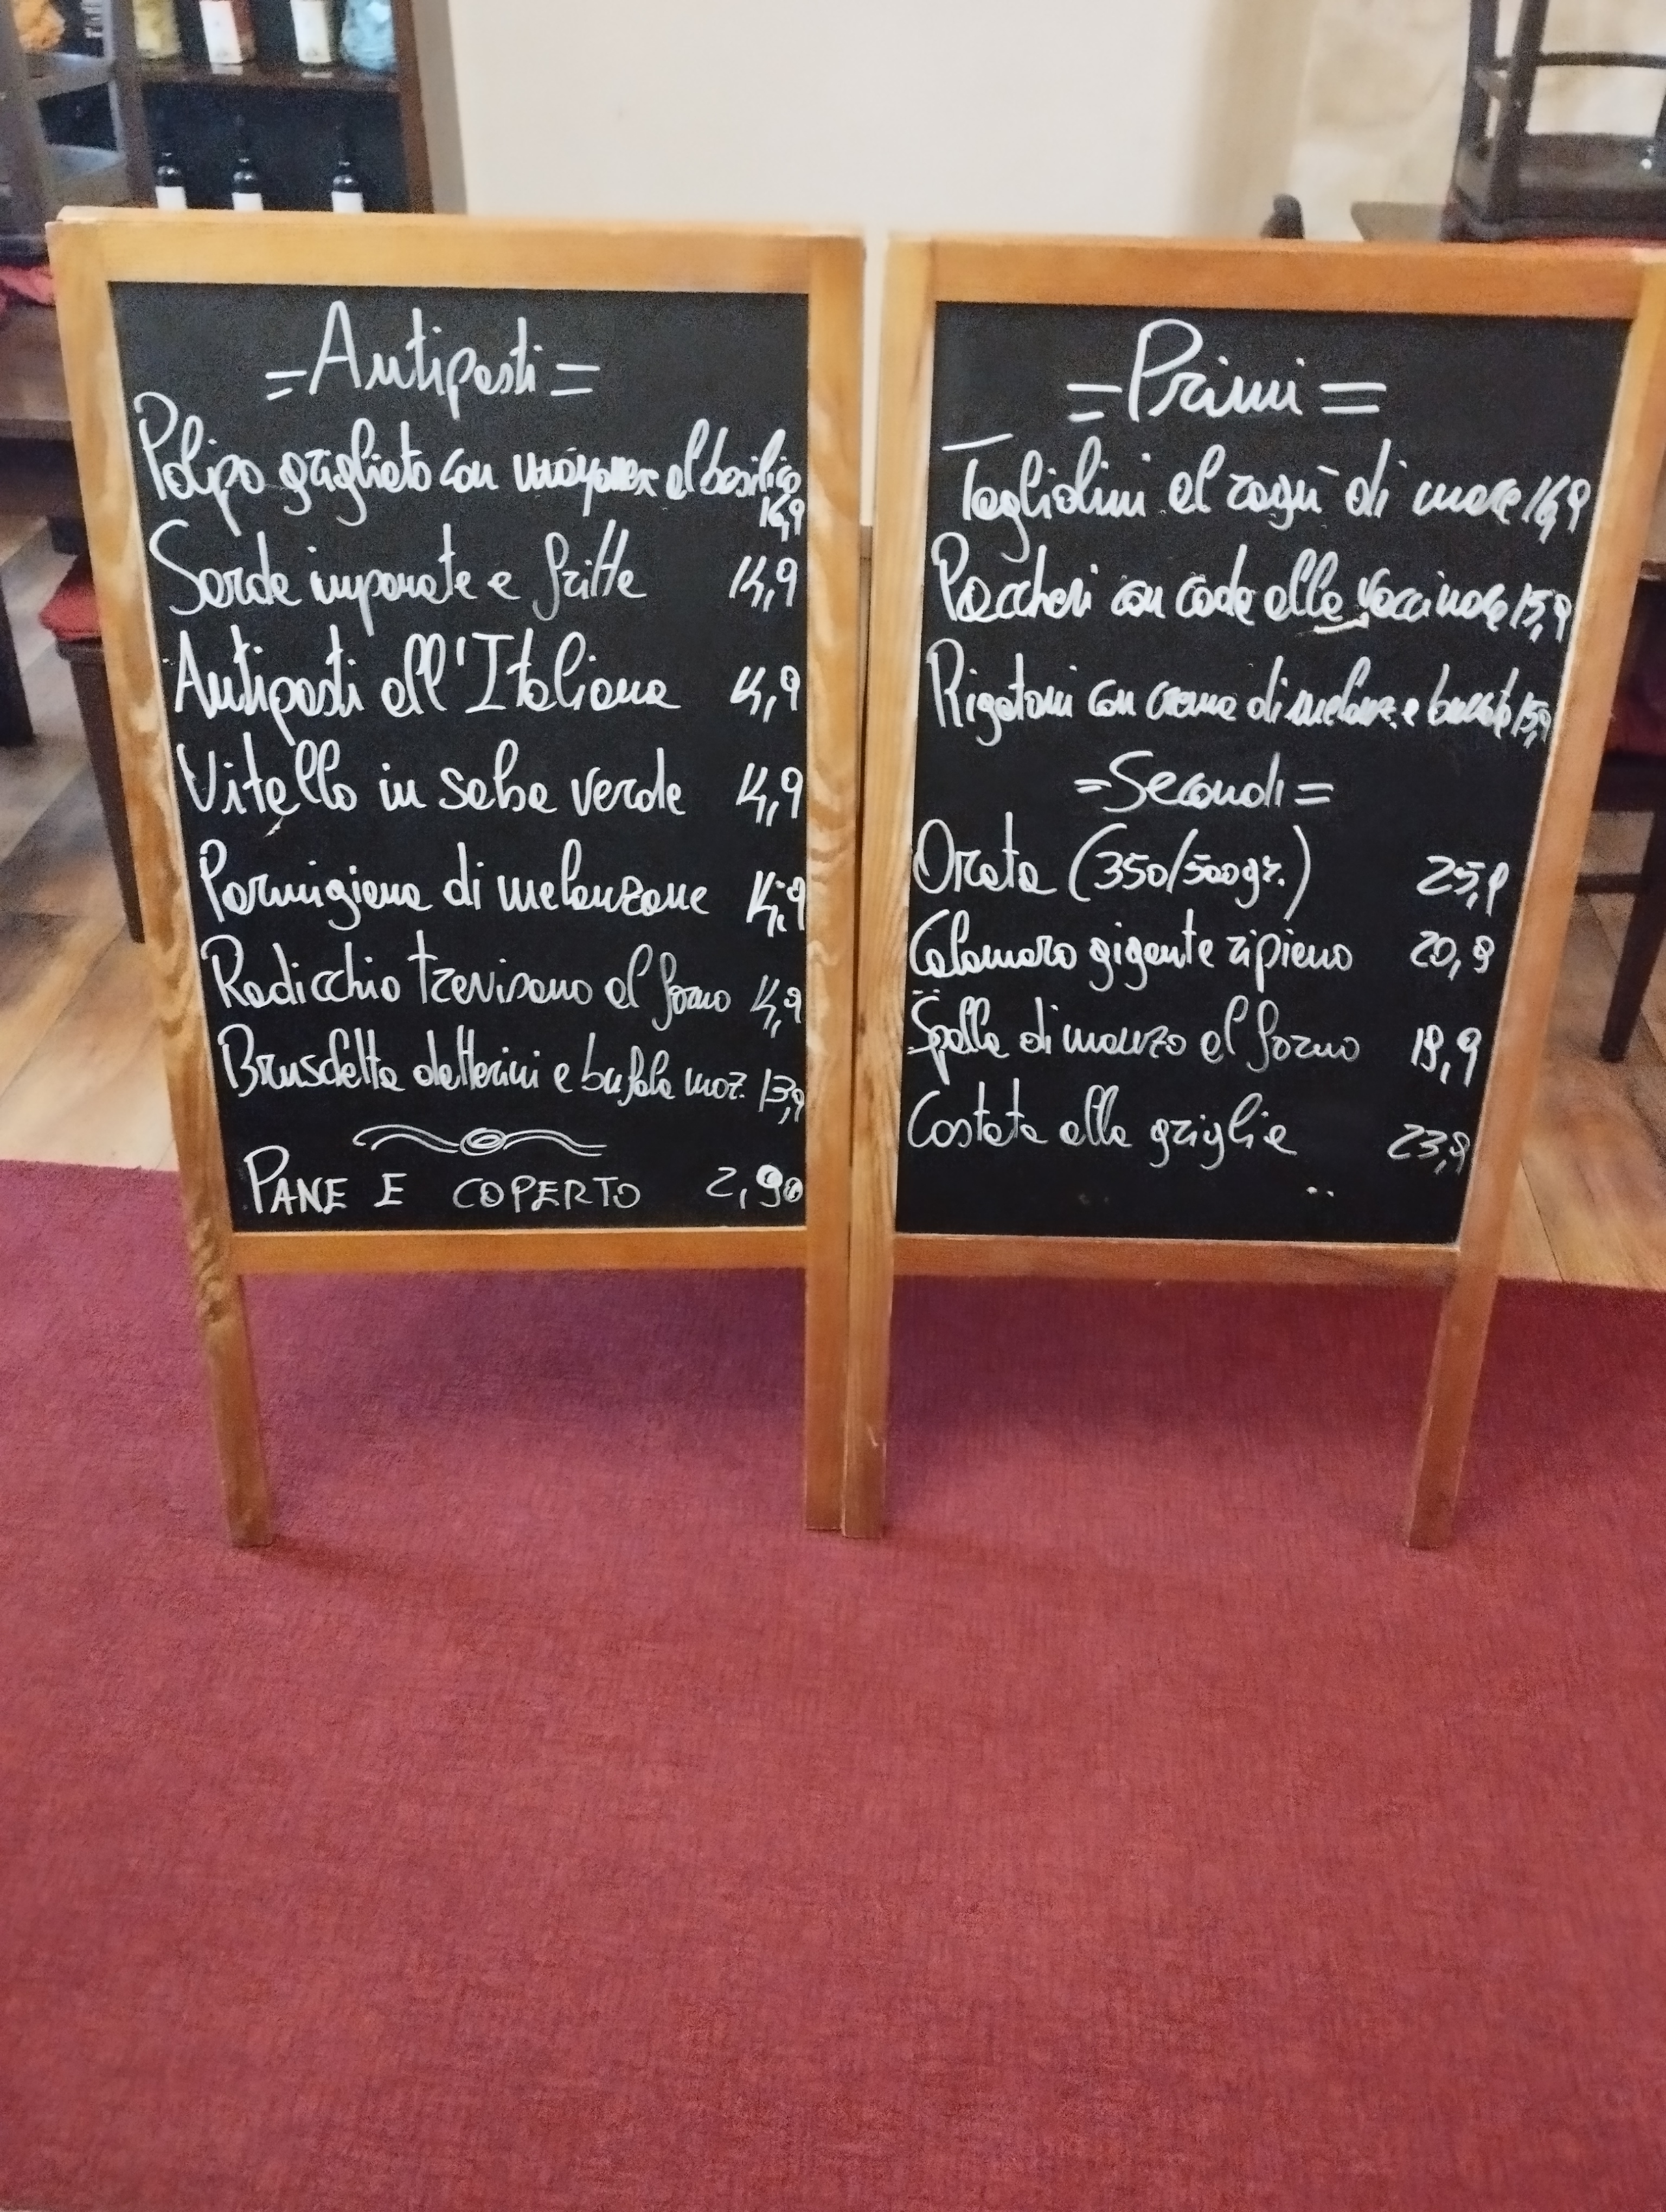 = Antipasti =
Polipo grigliato con mayonese al basilico
16,9
Sarde impanate e fritte 14,9
Antipasti all'Italiana 14,9
Vitello in salsa verde 14,9
Parmigiana di melanzane 14,9
Radicchio trevisano al forno 14,9
Bruschetta datterini e bufala moz. 13,9
PANE E COPERTO 2,90
= Primi =
Tagliolini al ragù di mare 16,9
Paccheri con coda alla vaccinara 15,9
Rigatoni con crema di melanz. e burrata 15,9
= Secondi =
Orata (350/500gr.) 25,9
Calamaro gigante ripieno 20,9
Spalla di manzo al forno 19,9
Costata alla griglia 23,9